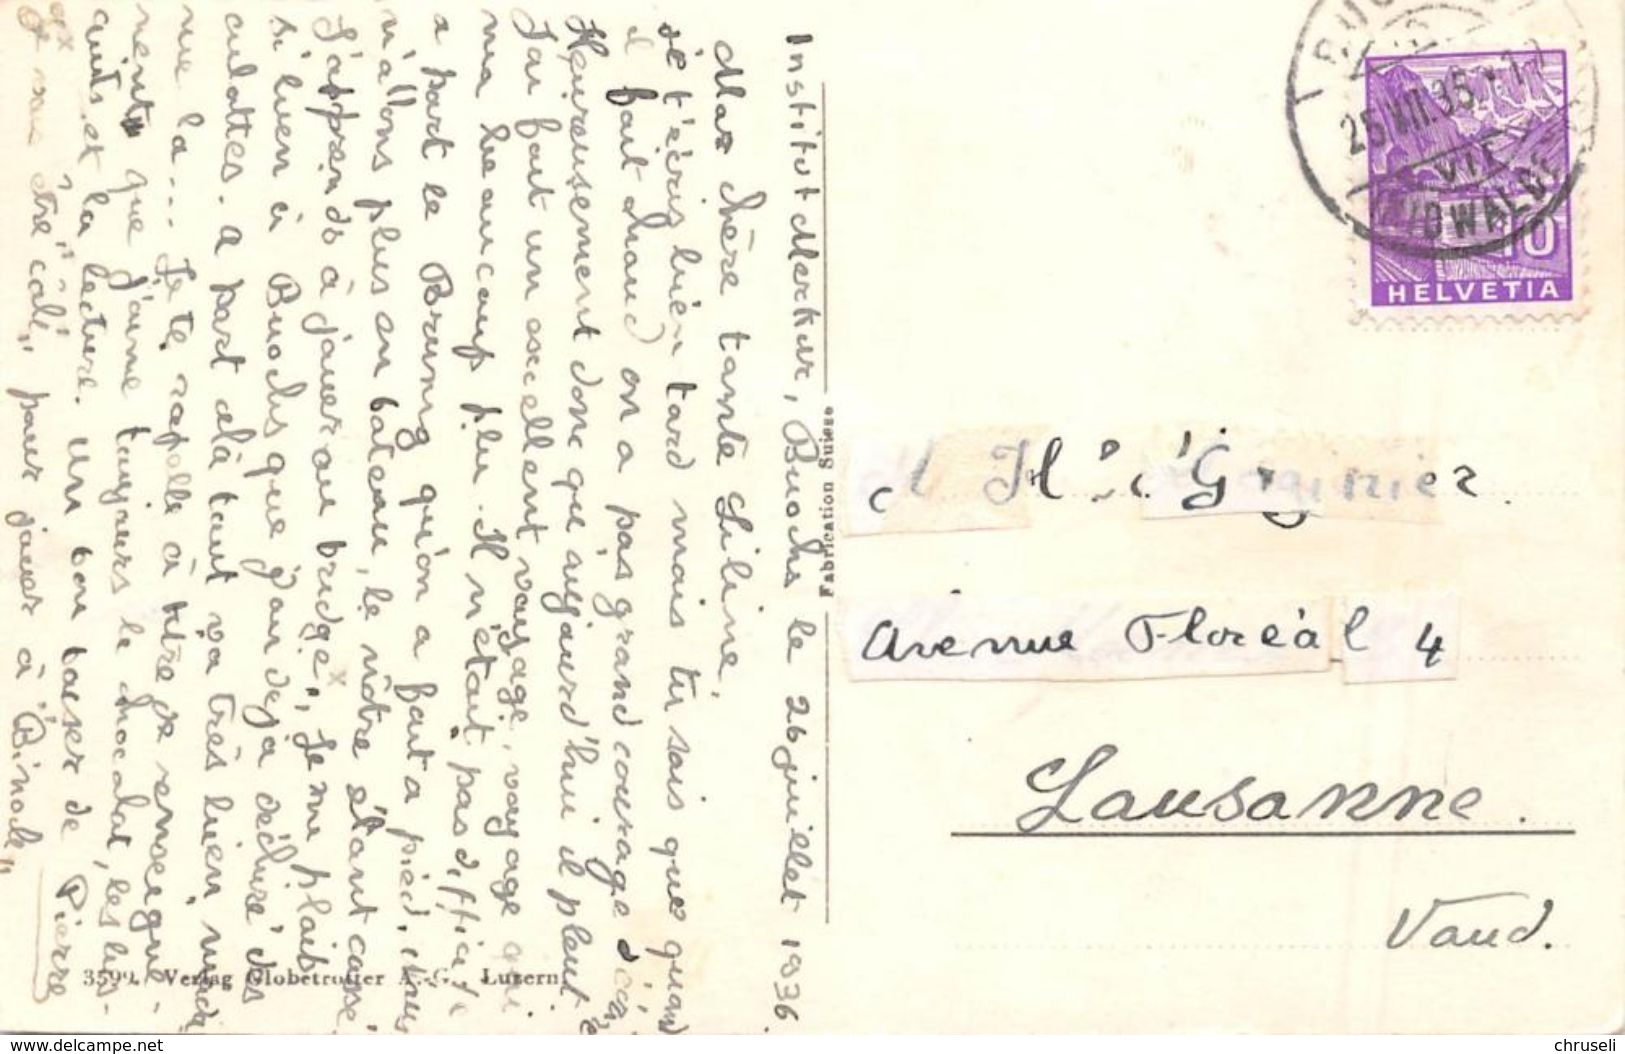 Institut Merkur, Buochs le 26 juillet 1936
Ma chère tante Liline,
Je t'écris bien tard mais tu sais que quand
il fait chaud on a pas grand courage d'écrire
Heureusement donc qu'aujourd'hui il pleut
J'ai fait un excellent voyage, voyage qui
m'a beaucoup plu. Il n'était pas difficile
à part le Brunig qu'on a fait à pied, nous
n'allons plus en bateau, le nôtre étant cassé
J'apprends à jouer au bridge", Je me plais
si bien à Buochs que j'ai déjà déchiré des
culottes. A part celà tout va très bien
me la.... Je te rapelle à titre de renseigne-
ments que j'aime toujours le chocolat, les bis-
cuits et la lecture. Un bon baiser de Pierre
x pour jouer à "Binocle"
3599. Verlag Globetrotter A.-G., Luzern
Fabrication Suisse
BUOCHS
25.VII.36
(NIDWALDEN)
10
HELVETIA
Avenue Floréal 4
Lausanne.
Vaud.
www.delcampe.net
chruseli